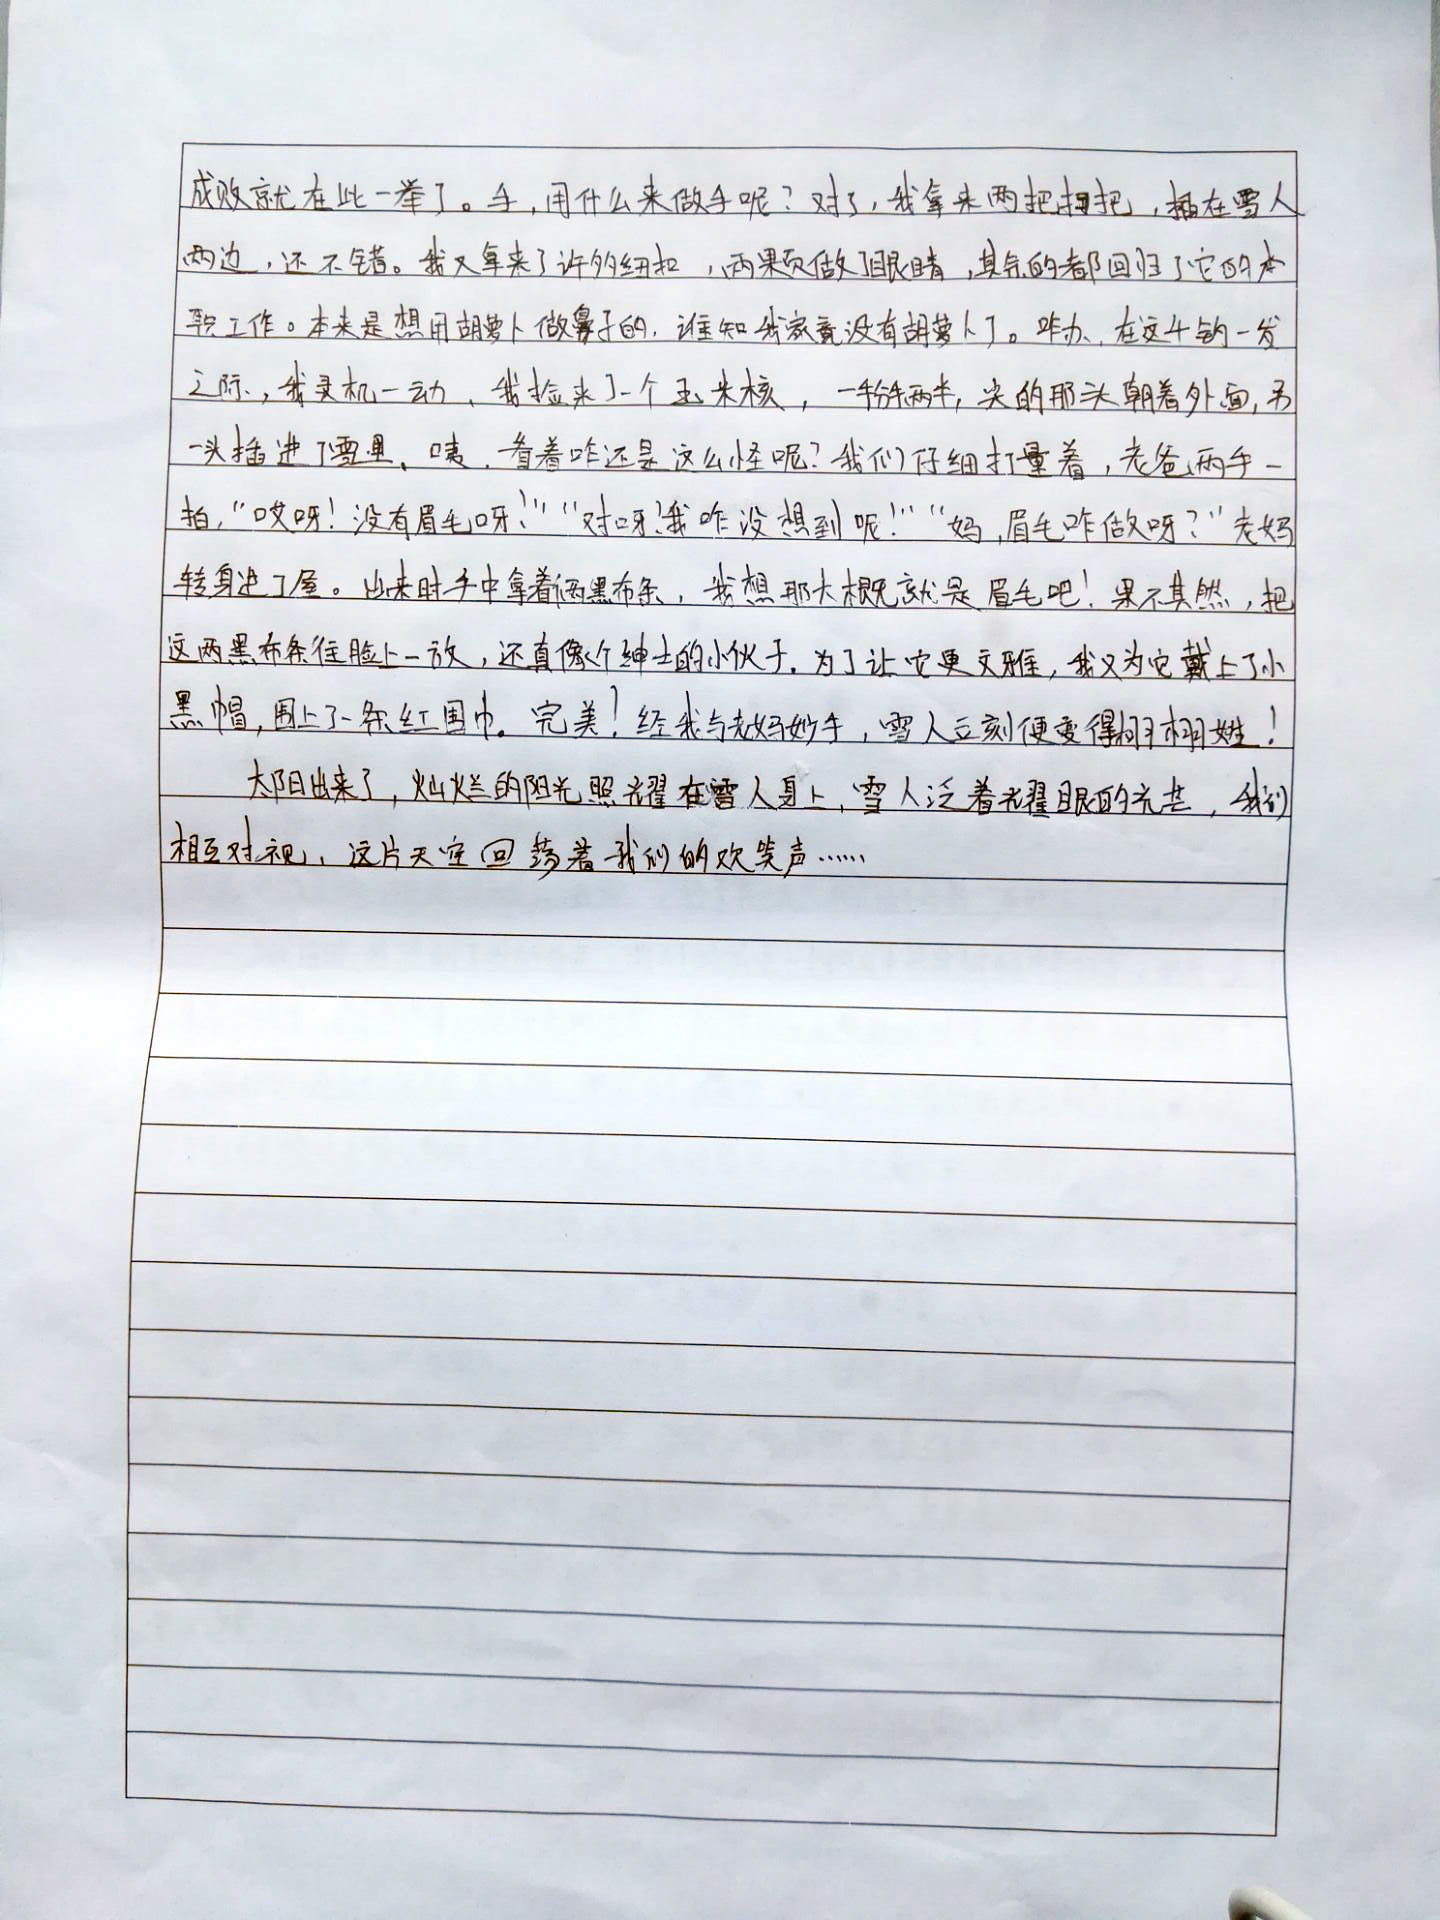 成败就在此一举了。手，用什么来做手呢？对了，我拿来两把扫把，插在雪人
两边，还不错。我又拿来了许多纽扣，两果页做了眼睛，其余的都回归了它的本
职工作。本来是想用胡萝卜做鼻子的，谁知我家竟没有胡萝卜了。咋办，在这千钧一发
之际，我灵机一动，我捡来了一个玉米核，一掰两半，尖的那头朝着外面，另
一头插进了雪里。咦，看着咋还是这么怪呢？我们仔细打量着，老爸两手一
拍，“哎呀！没有眉毛呀！”“对呀！我咋没想到呢！”“妈，眉毛咋做呀？”老妈
转身进了屋。出来时手中拿着俩黑布条，我想那大概就是眉毛吧！果不其然，把
这两黑布条往脸上一放，还真像个绅士的小伙子。为了让它更文雅，我又为它戴上了小
黑帽，围上了一条红围巾。完美！经我与老妈妙手，雪人立刻便变得栩栩姓！
太阳出来了，灿烂的阳光照耀在雪人身上，雪人泛着耀眼的光芒，我们
相互对视，这片天空回荡着我们的欢笑声……